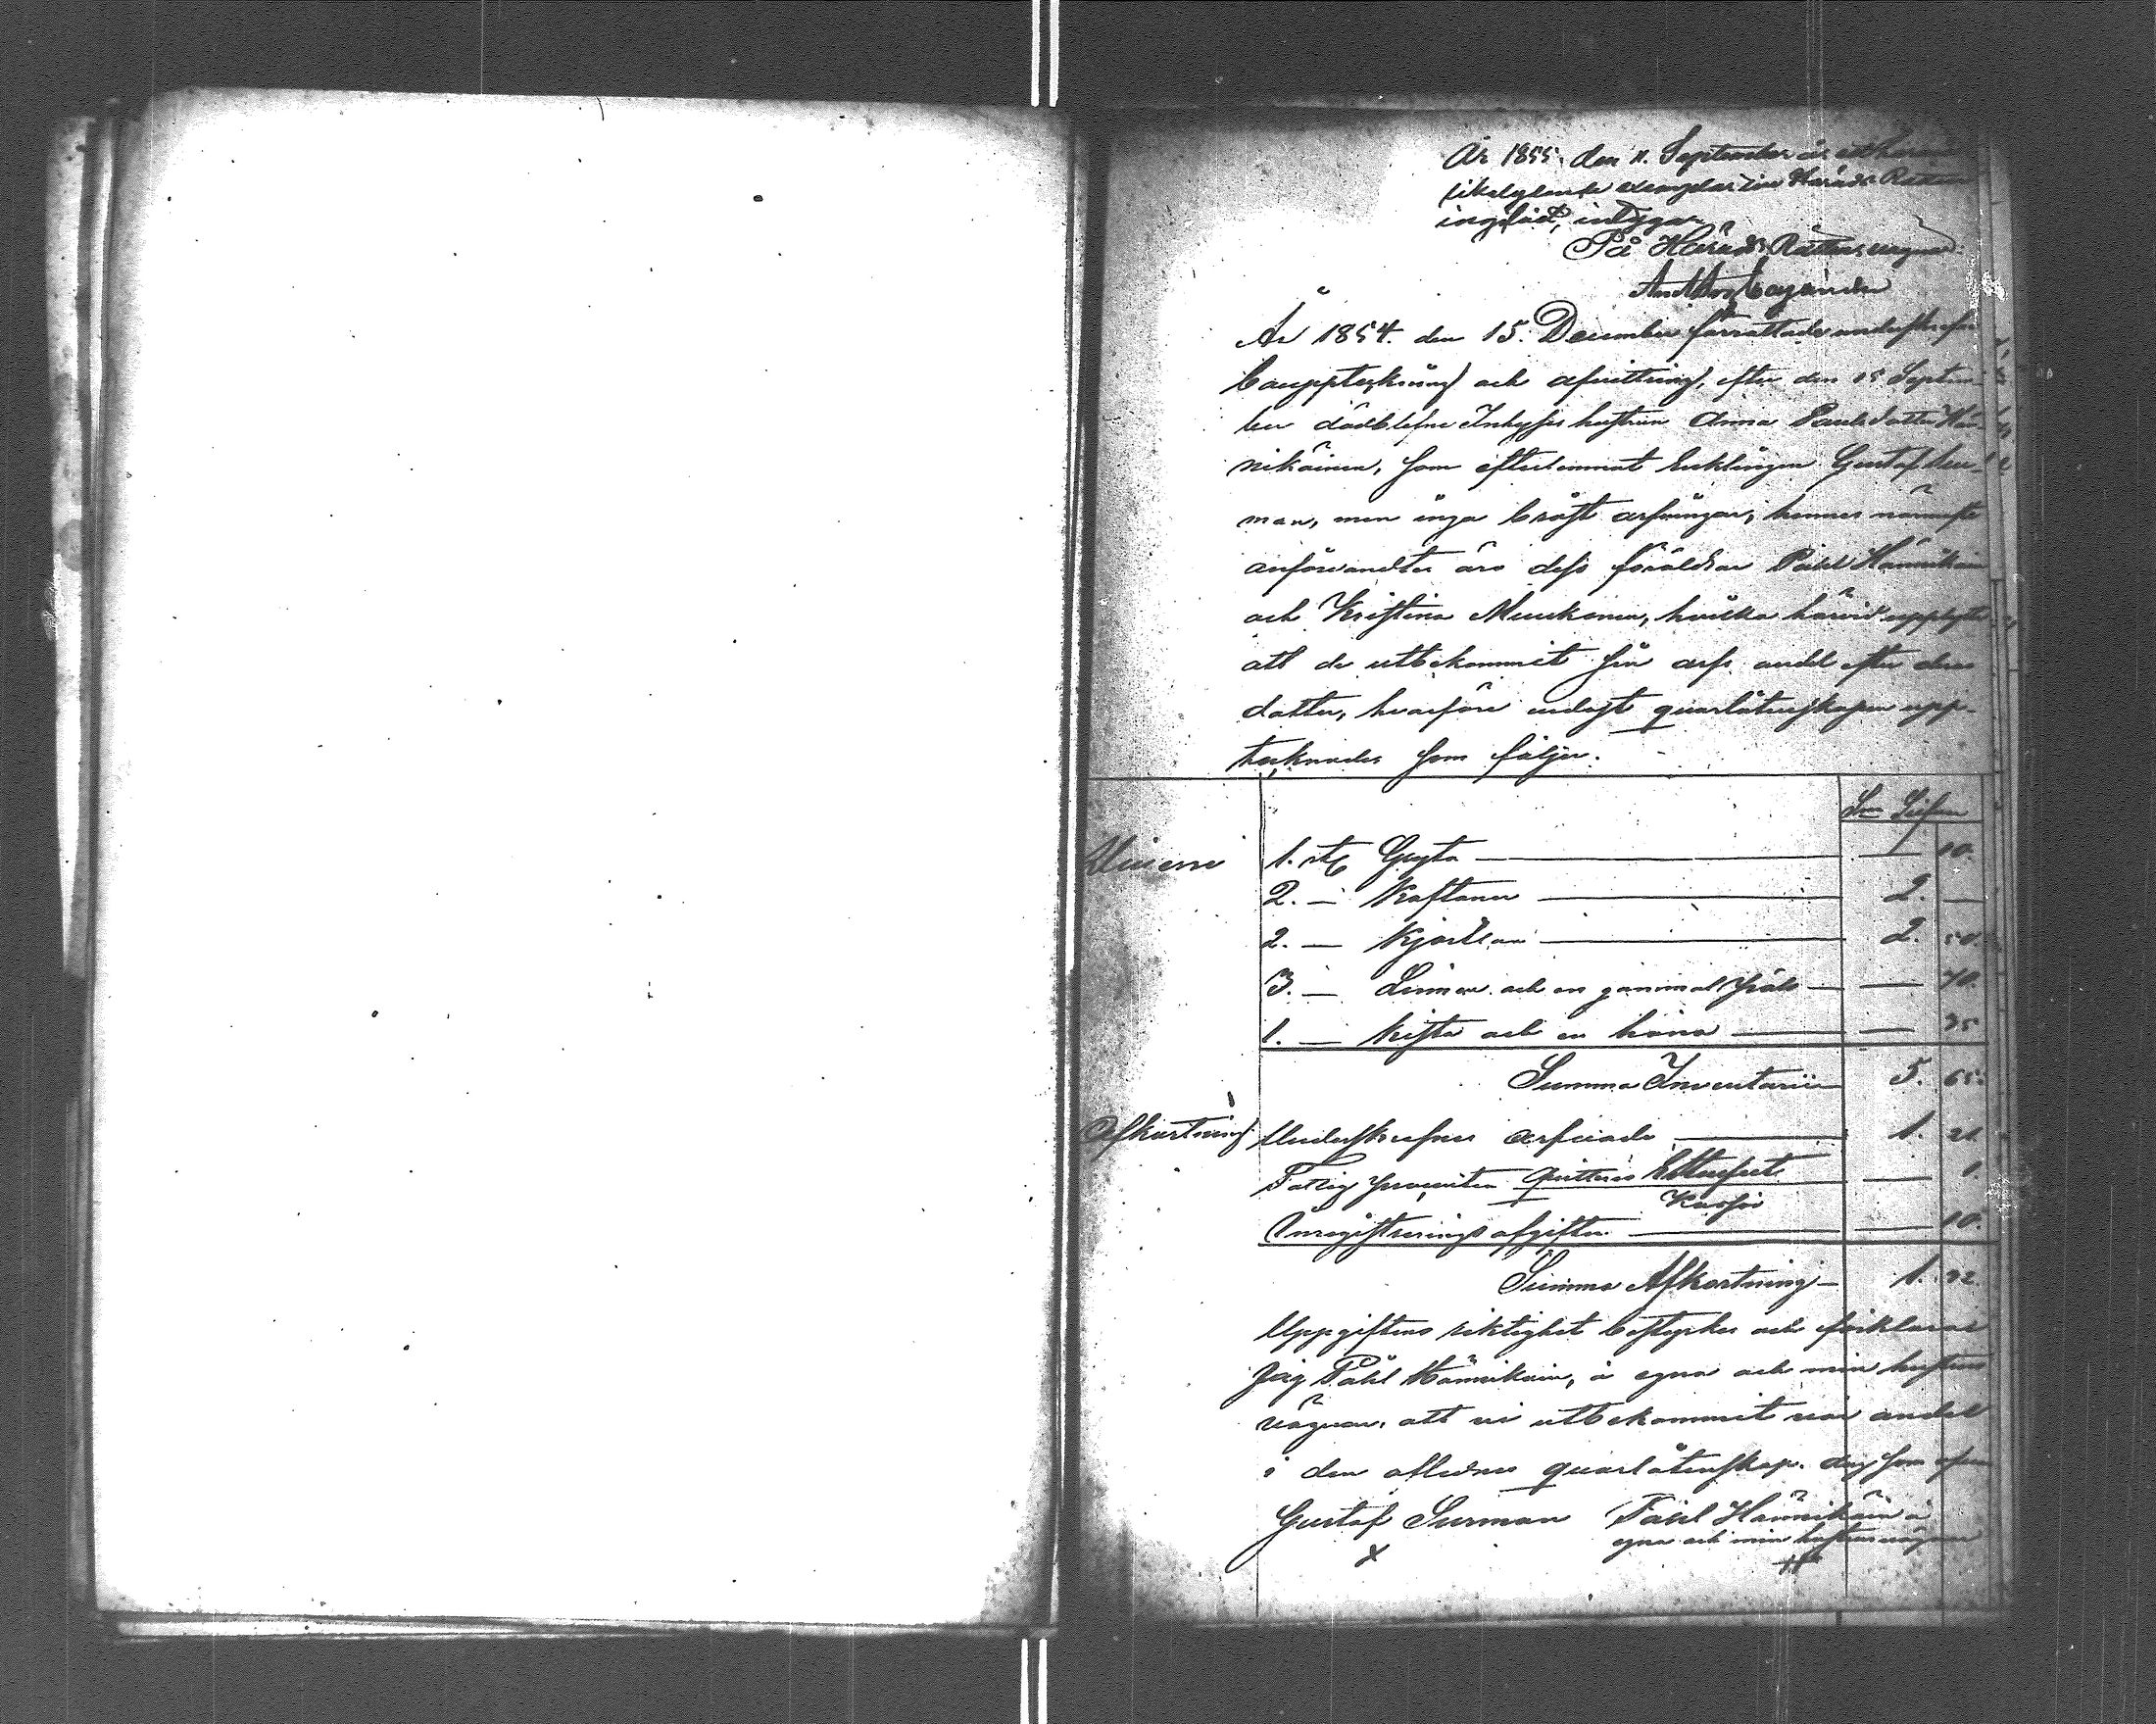 År 1855. den 11. September är ett härmed
likalydande exemplar till Härads Rätten
ingifvit, intygar
På Härads Rättens vägnar
Cajander
År 1854. den 15. December förrättade undertecknad
bouppteckning och afvittring, efter den 25 Septem-
ber dödblefne Inhyses hustrun Anna Pauls dotter Hän-
nikäinen, som efterlemnat Enklingen Gustaf Sur-
man, men inga bröst arfvingar, hennes närmste
anförvandter äro dess föräldrar Påhl Hännikäin
och Kristina Muukonen, hvilka härvid uppgifva
att de utbekommit sin arfs andel efter dess
dotter, hvarföre endast quarlåtenskapen upp-
tecknades som följer.
Sr Silfver
1. st Gryta — — 10.
2. — Kaftaner — 2. —
2. — Kjortlar — 2. 50.
3. — Linnen och en gammal päls — — 70.
1. — Kista och en håna — — 35
Summa Inventarium 5. 65.
Afkortning Underskrefnes arfvode — 1. 21.
Fattig procenten — 1.
Inregistrerings afgiften — — 10.
Summa Afkortning — 1. 32.
Uppgiftens riktighet bestyrkes och förklarar
jag Påhl Hännikäin, å egna och min hustrus
vägnar, att vi utbekommit vår andel
i den aflednes quarlåtenskap. dag som ofvan
Gustaf Surman Påhl Hännikäin å
egna och min hustrus vägnar